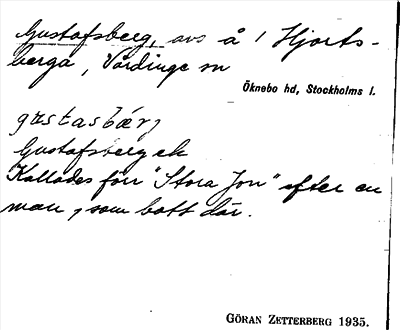 Gustafsberg, avs å 1 Hjorts-
berga, Vårdinge sn
Öknebo hd, Stockholms l.
gustasbærj
Gustafsberg
Kallades förr "Stora Jon" efter en
man, som bott där.
GÖRAN ZETTERBERG 1935.